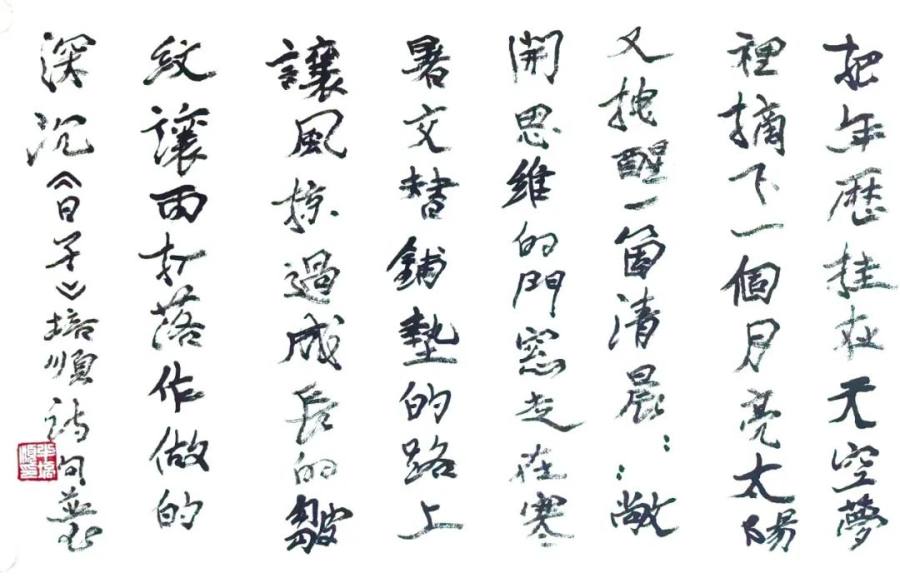 把年歷挂在天空夢
裡摘下一個月亮太陽
又拽醒一箇清晨::敞
開思維的門窓走在寒
暑交替鋪墊的路上
讓風掠過成長的皺
紋讓雨打落作做的
深沉《日子》培順詩句並書